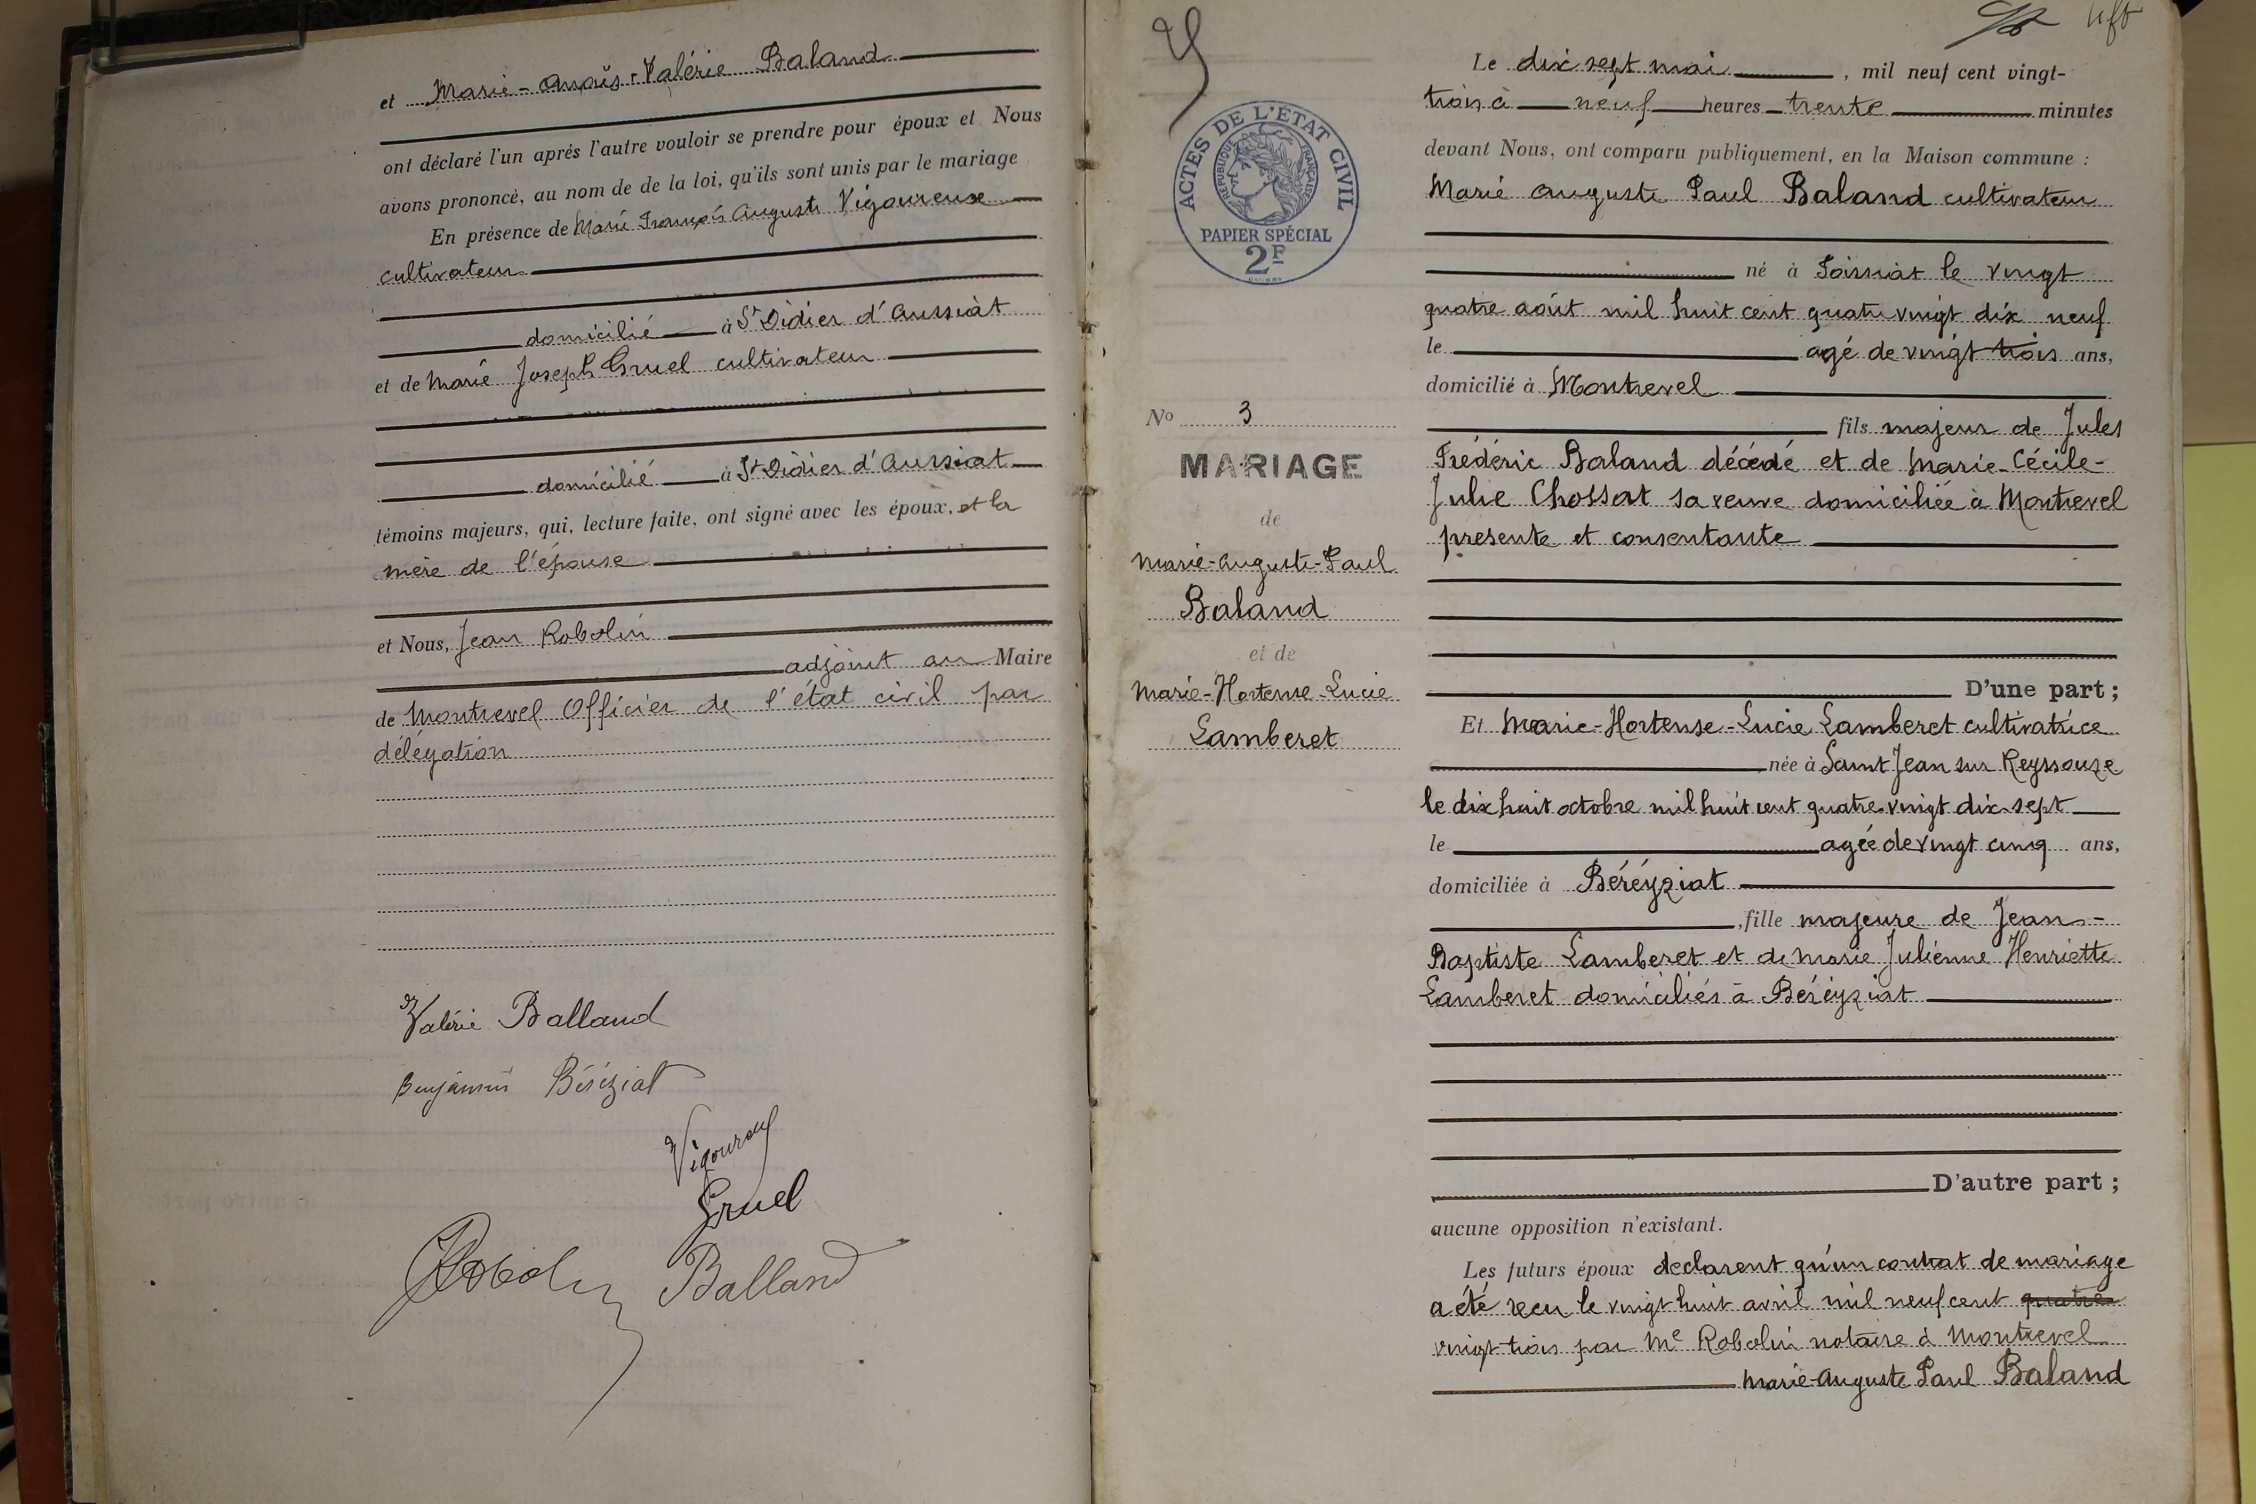 et Marie-Anaïs-Valérie Baland
ont déclaré l'un après l'autre vouloir se prendre pour époux et Nous
avons prononcé, au nom de de la loi, qu'ils sont unis par le mariage
En présence de Marie François Auguste Vigoureux
cultivateur
domicilié à St Didier d'Aussiat
et de Marie Joseph Gruel cultivateur
domicilié à St Didier d'Aussiat
témoins majeurs, qui, lecture faite, ont signé avec les époux, et la
mère de l'épouse
et Nous, Jean Robolin
adjoint au Maire
de Montrevel Officier de l'état civil par
délégation
Valérie Balland
Benjamin Béréziat
Vigoureux
Gruel
Robolin Balland
ACTES DE L'ÉTAT CIVIL
RÉPUBLIQUE FRANÇAISE
PAPIER SPÉCIAL
2F
No 3
MARIAGE
de
Marie-Auguste-Paul
Baland
et de
Marie-Hortense-Lucie
Lamberet
Le dix sept mai, mil neuf cent vingt-
trois à neuf heures trente minutes
devant Nous, ont comparu publiquement, en la Maison commune :
Marie Auguste Paul Baland cultivateur
né à Foissiat le vingt
quatre août mil huit cent quatre vingt dix neuf
le agé de vingt trois ans,
domicilié à Montrevel
fils majeur de Jules
Frédéric Baland décédé et de Marie-Cécile-
Julie Chossat sa veuve domiciliée à Montrevel
présente et consentante
D'une part ;
Et Marie-Hortense-Lucie Lamberet cultivatrice
née à Saint Jean sur Reyssouze
le dix huit octobre mil huit cent quatre vingt dix sept
le agée de vingt cinq ans,
domiciliée à Béréyziat
, fille majeure de Jean-
Baptiste Lamberet et de Marie Julienne Henriette
Lamberet domiciliés à Béréyziat
D'autre part ;
aucune opposition n'existant.
Les futurs époux déclarent qu'un contrat de mariage
a été reçu le vingt huit avril mil neuf cent quatre
vingt-trois par Me Robolin notaire à Montrevel
Marie-Auguste Paul Baland